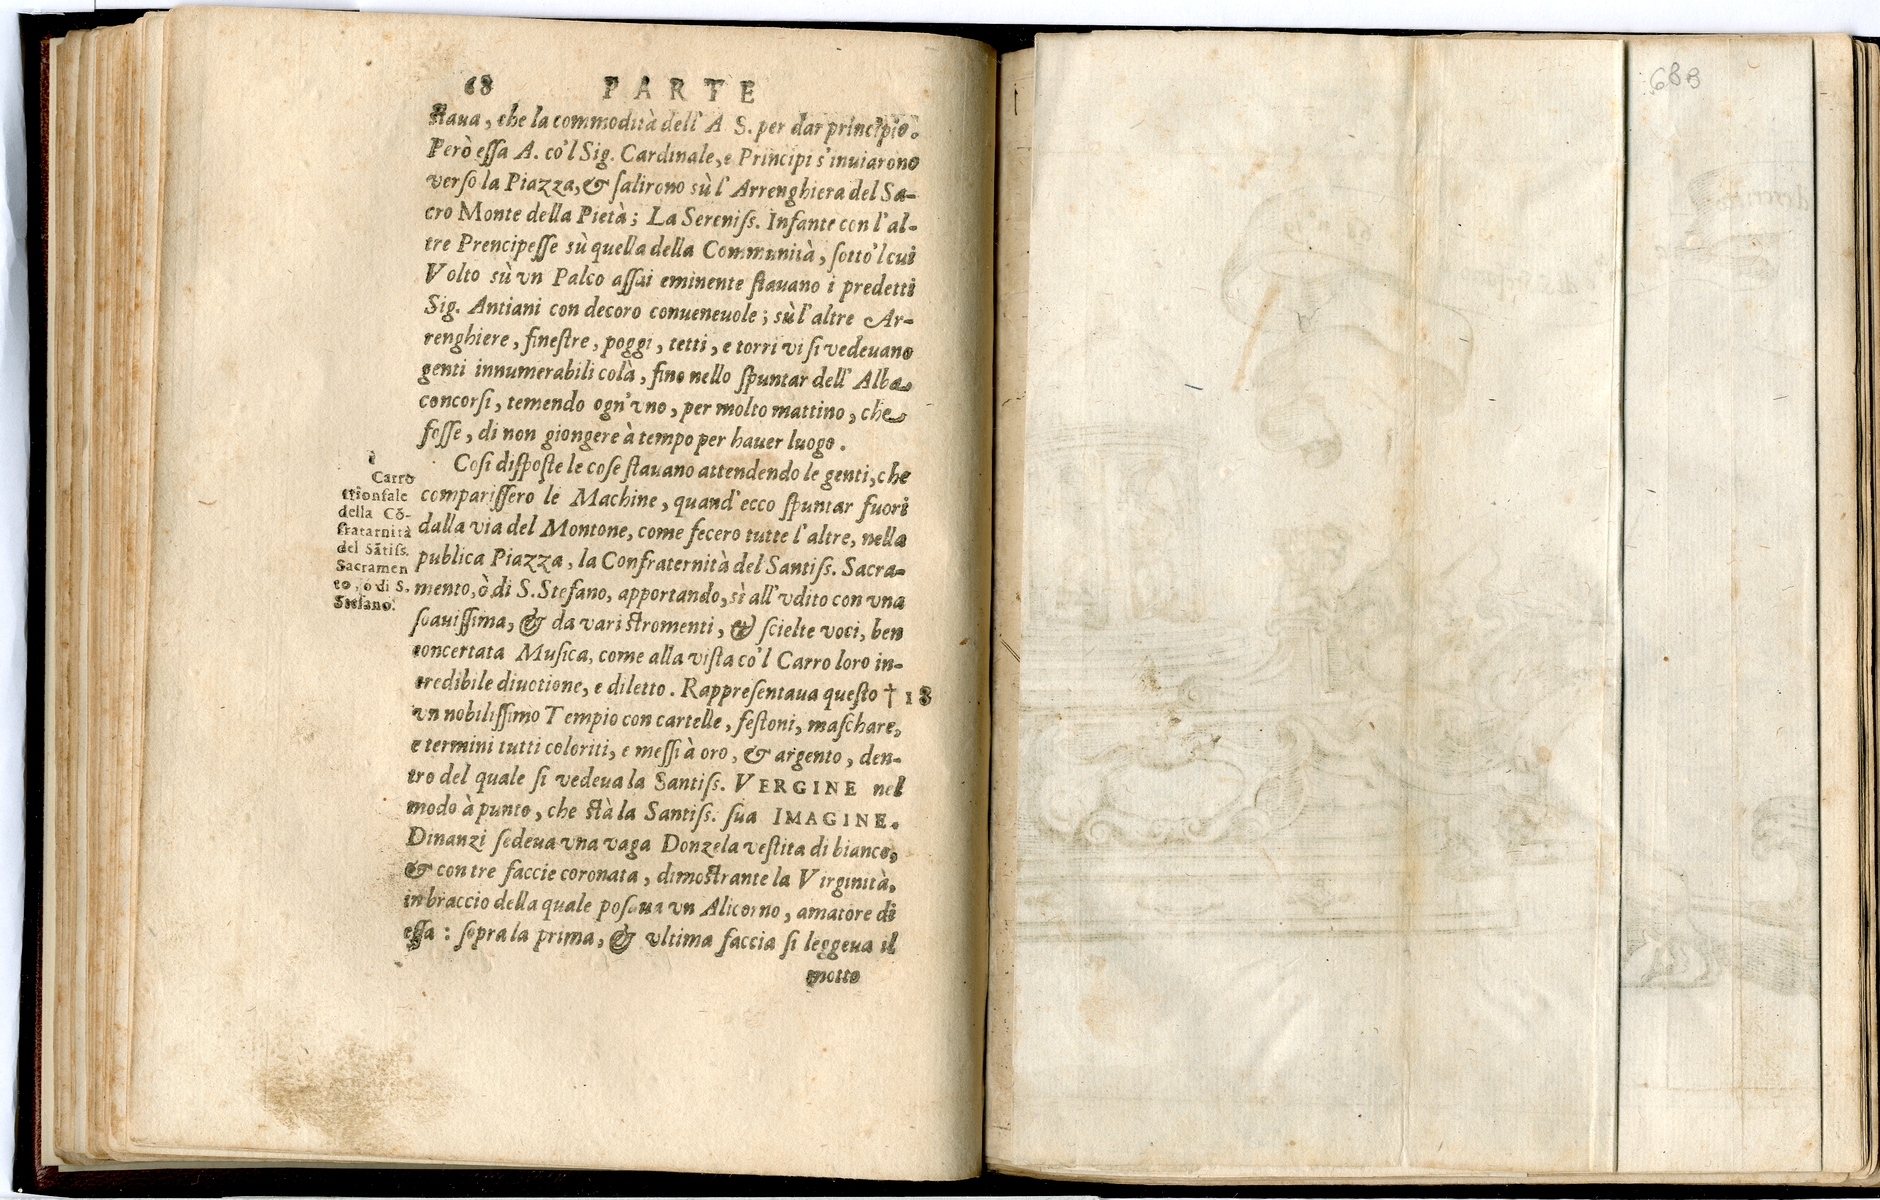 68 PARTE
ſtaua, che la commodità dell' A S. per dar principio.
Però eſſa A. co'l Sig. Cardinale, e Principi s'inuiarono
verſo la Piazza, & ſalirono sù l' Arrenghiera del Sa-
cro Monte della Pietà; La Sereniſs. Infante con l'al-
tre Prencipeſſe sù quella della Communità, ſotto'l cui
Volto sù vn Palco aſſai eminente ſtauano i predetti
Sig. Antiani con decoro conueneuole; sù l'altre Ar-
renghiere, fineſtre, poggi, tetti, e torri vi ſi vedeuano
genti innumerabili colà, fino nello ſpuntar dell' Alba
concorſi, temendo ogn'vno, per molto mattino, che
foſſe, di non giongere à tempo per hauer luogo.
Coſi diſpoſte le coſe ſtauano attendendo le genti, che
compariſſero le Machine, quand'ecco ſpuntar fuori
dalla via del Montone, come fecero tutte l'altre, nella
publica Piazza, la Confraternità del Santiſs. Sacra-
mento, ò di S. Stefano, apportando, sì all'vdito con vna
ſoauiſſima, & da vari ſtromenti, & ſcielte voci, ben
concertata Muſica, come alla viſta co'l Carro loro in-
credibile diuotione, e diletto. Rappreſentaua queſto † 18
vn nobiliſſimo Tempio con cartelle, feſtoni, maſchare,
e termini tutti coloriti, e meſſi à oro, & argento, den-
tro del quale ſi vedeua la Santiſs. VERGINE nel
modo à punto, che ſtà la Santiſs. ſua IMAGINE.
Dinanzi ſedeua vna vaga Donzela veſtita di bianco,
& con tre faccie coronata, dimoſtrante la Virginità,
in braccio della quale poſaua vn Alicorno, amatore di
eſſa: ſopra la prima, & vltima faccia ſi leggeua il
motto
è
Carro
trionfale
della Cõ-
fratarnità
del Sãtiſs.
Sacramen
to, ò di S.
Stefano.
68B